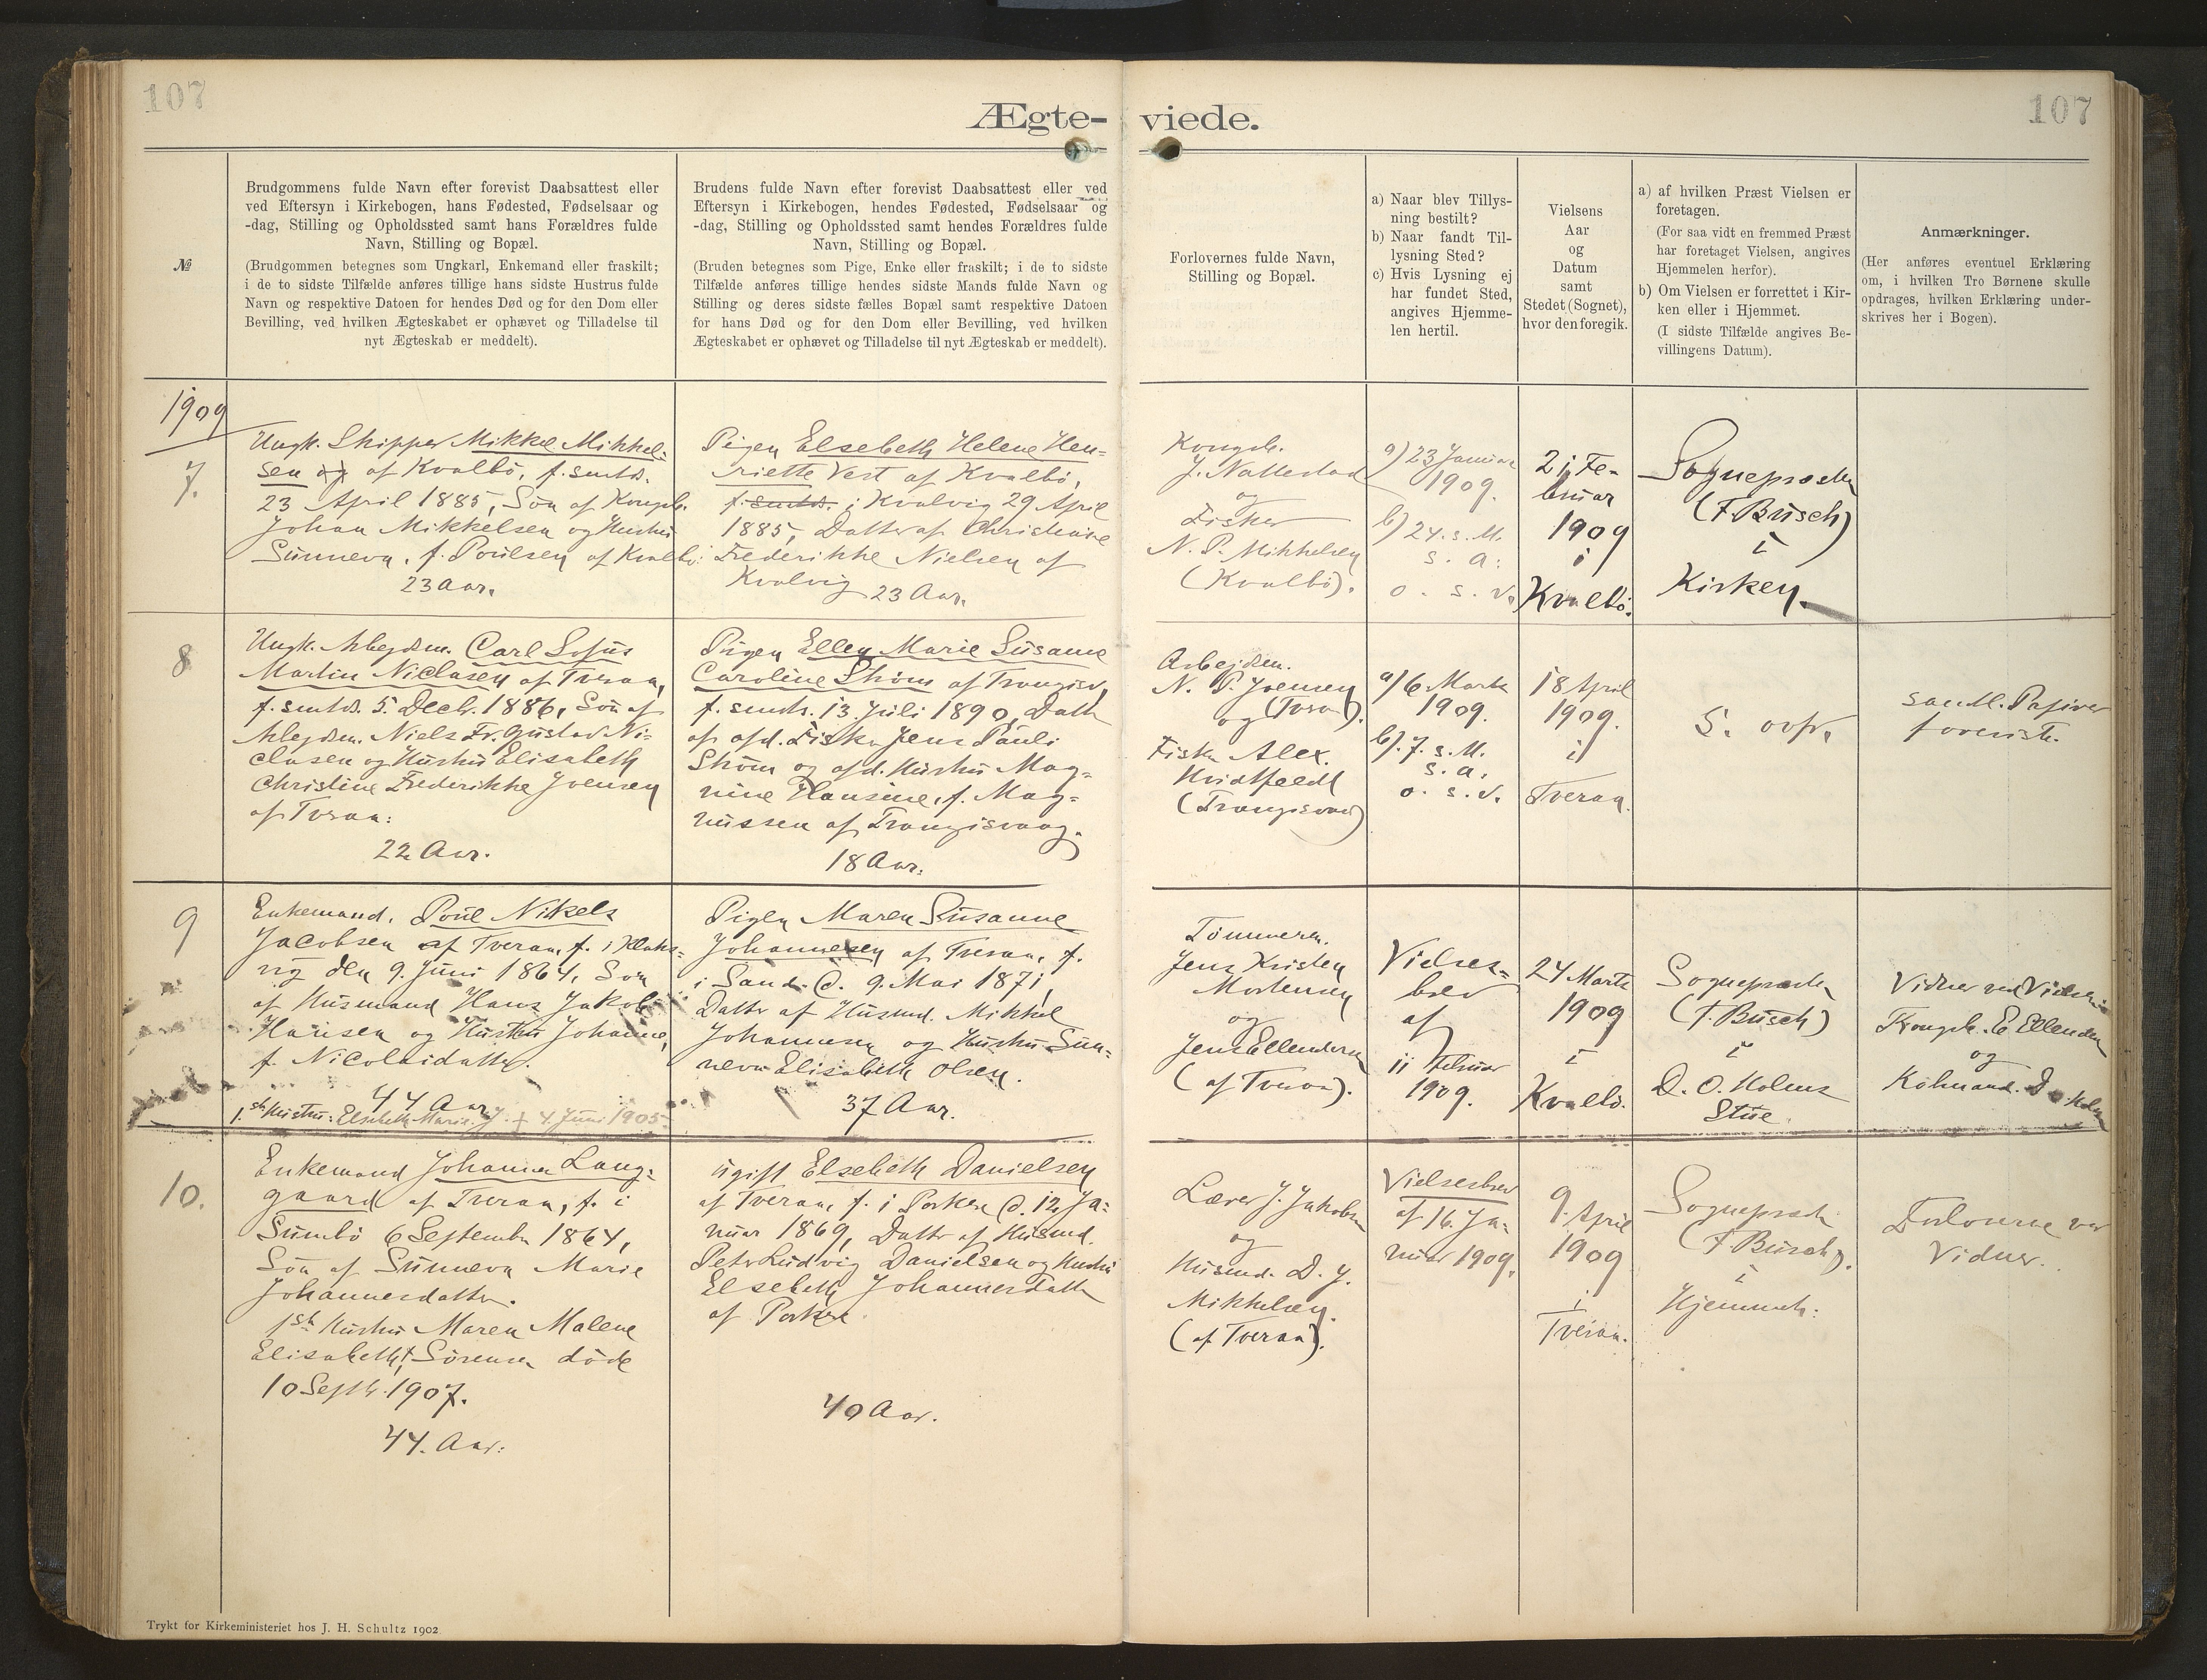 107
Ægte-
viede.
107
№
Brudgommens fulde Navn efter forevist Daabsattest eller
ved Eftersyn i Kirkebogen, hans Fødested, Fødselsaar og
-dag, Stilling og Opholdssted samt hans Forældres fulde
Navn, Stilling og Bopæl.
(Brudgommen betegnes som Ungkarl, Enkemand eller fraskilt;
i de to sidste Tilfælde anføres tillige hans sidste Hustrus fulde
Navn og respektive Datoen for hendes Død og for den Dom eller
Bevilling, ved hvilken Ægteskabet er ophævet og Tilladelse til
nyt Ægteskab er meddelt).
Brudens fulde Navn efter forevist Daabsattest eller ved
Eftersyn i Kirkebogen, hendes Fødested, Fødselsaar og
-dag, Stilling og Opholdssted samt hendes Forældres fulde
Navn, Stilling og Bopæl.
(Bruden betegnes som Pige, Enke eller fraskilt; i de to sidste
Tilfælde anføres tillige hendes sidste Mands fulde Navn og
Stilling og deres sidste fælles Bopæl samt respektive Datoen
for hans Død og for den Dom eller Bevilling, ved hvilken
Ægteskabet er ophævet og Tilladelse til nyt Ægteskab er meddelt).
Forlovernes fulde Navn,
Stilling og Bopæl.
a) Naar blev Tillys-
ning bestilt?
b) Naar fandt Til-
lysning Sted?
c) Hvis Lysning ej
har fundet Sted,
angives Hjemme-
len hertil.
Vielsens
Aar
og
Datum
samt
Stedet (Sognet),
hvor den foregik.
a) af hvilken Præst Vielsen er
foretagen.
(For saa vidt en fremmed Præst
har foretaget Vielsen, angives
Hjemmelen herfor).
b) Om Vielsen er forrettet i Kir-
ken eller i Hjemmet.
(I sidste Tilfælde angives Be-
villingens Datum).
Anmærkninger.
(Her anføres eventuel Erklæring
om, i hvilken Tro Børnene skulle
opdrages, hvilken Erklæring under-
skrives her i Bogen).
1909
7.
Ungk. Skipper Mikkel Mikkel-
sen af Kvalbö, f. smtds.
23 April 1885, Sön af Kongsb.
Johan Mikkelsen og Hustru
Sunneva, f. Poulsen af Kvalbö:
23 Aar.
Pigen Elsebeth Helene Hen-
riette Vest af Kvalbö,
f. smtds. i Kvalvig 29 April
1885, Datter af Christiane
Frederikke Nielsen af
Kvalvig 23 Aar.
Kongsb.
J. Nattestad
og
Fisker
N. P. Mikkelsen
(Kvalbö).
a) 23 Januar
1909.
b) 24. s. M.
s. A:
o. s. v.
21 Fe-
bruar
1909
i
Kvalbö.
Sognepræsten
(F. Busch)
i
Kirken.
8
Ungk. Arbejdsm. Carl Sofus
Martin Niclasen af Tveraa,
f. smtds. 5. Decbr. 1886, Sön af
Arbejdsm. Niels Fr. Gustav Ni-
clasen og Hustru Elisabeth
Christine Frederikke Joensen
af Tveraa:
22 Aar.
Pigen Ellen Marie Susanne
Caroline Ström af Trangisv,
f. smtds. 13. Juli 1890, Datter
af afd. Fisker Jens Pauli
Ström og afd. Hustru Mag-
nine Hansine, f. Mag-
nussen af Trangisvaag.
18 Aar.
Arbejdsm.
N. P. Joensen
og (Tveraa).
Fisker Alex.
Hvidtfeldt
(Trangisvaag)
a) 6. Marts
1909.
b) 7. s. M.
s. A.
o. s. v.
18 April
1909.
i
Tveraa.
S. ovfr.
samtl. Papirer
foreviste.
9
Enkemand, Poul Nikels
Jacobsen af Tveraa, f. i Klaks-
vig den 9. Juni 1864, Sön
af Husmand Hans Jakob
Hansen og Hustru Johanne,
f. Nicolaidatter.
44 Aar
1.ste Hustru: Elsebeth Marie J. + 4 Juni 1905
Pigen Maren Susanne
Johannesen af Tveraa, f.
i Sand. d. 9. Mai 1871,
Datter af Husmd. Mikkel
Johannesen og Hustru Sun-
neva Elisabeth Olsen.
37 Aar.
Tömmerm.
Jens Kristen
Mortensen
og
Jens Ellendersen
(af Tveraa).
Vielses-
brev
af
11 Februar
1909.
24 Marts
1909
i
Kvalbö.
Sognepræsten
(F. Busch)
i
D. O. Holms
Stue
Vidner ved Vielsen
Kongsb. E Ellendersen
og
Köbmand. D. O. Holm
10.
Enkemand Johannes Lang-
gaard af Tveraa, f. i
Sumbö 6 September 1864,
Sön af Sunneva Marie
Johannesdatter.
1ste Hustru Maren Malene
Elisabeth, f Sörensen döde
10 Septbr. 1907.
44. Aar.
Ugift Elsebeth Danielsen
af Tveraa, f. i Porkere d. 12 Ja-
nuar 1869, Datter af Husmd.
Peter Ludvig Danielsen og Hustru
Elsebeth Johannesdatter
af Porkere
40 Aar.
Lærer J. Jakobsen
og
Husmd. D. J.
Mikkelsen.
(af Tveraa).
Vielsesbrev
af 16. Ja-
nuar 1909.
9. April
1909
i
Tveraa.
Sognepræsten
(F. Busch).
i
Hjemmet.
Forloverne var
Vidner.
Trykt for Kirkeministeriet hos J. H. Schultz 1902